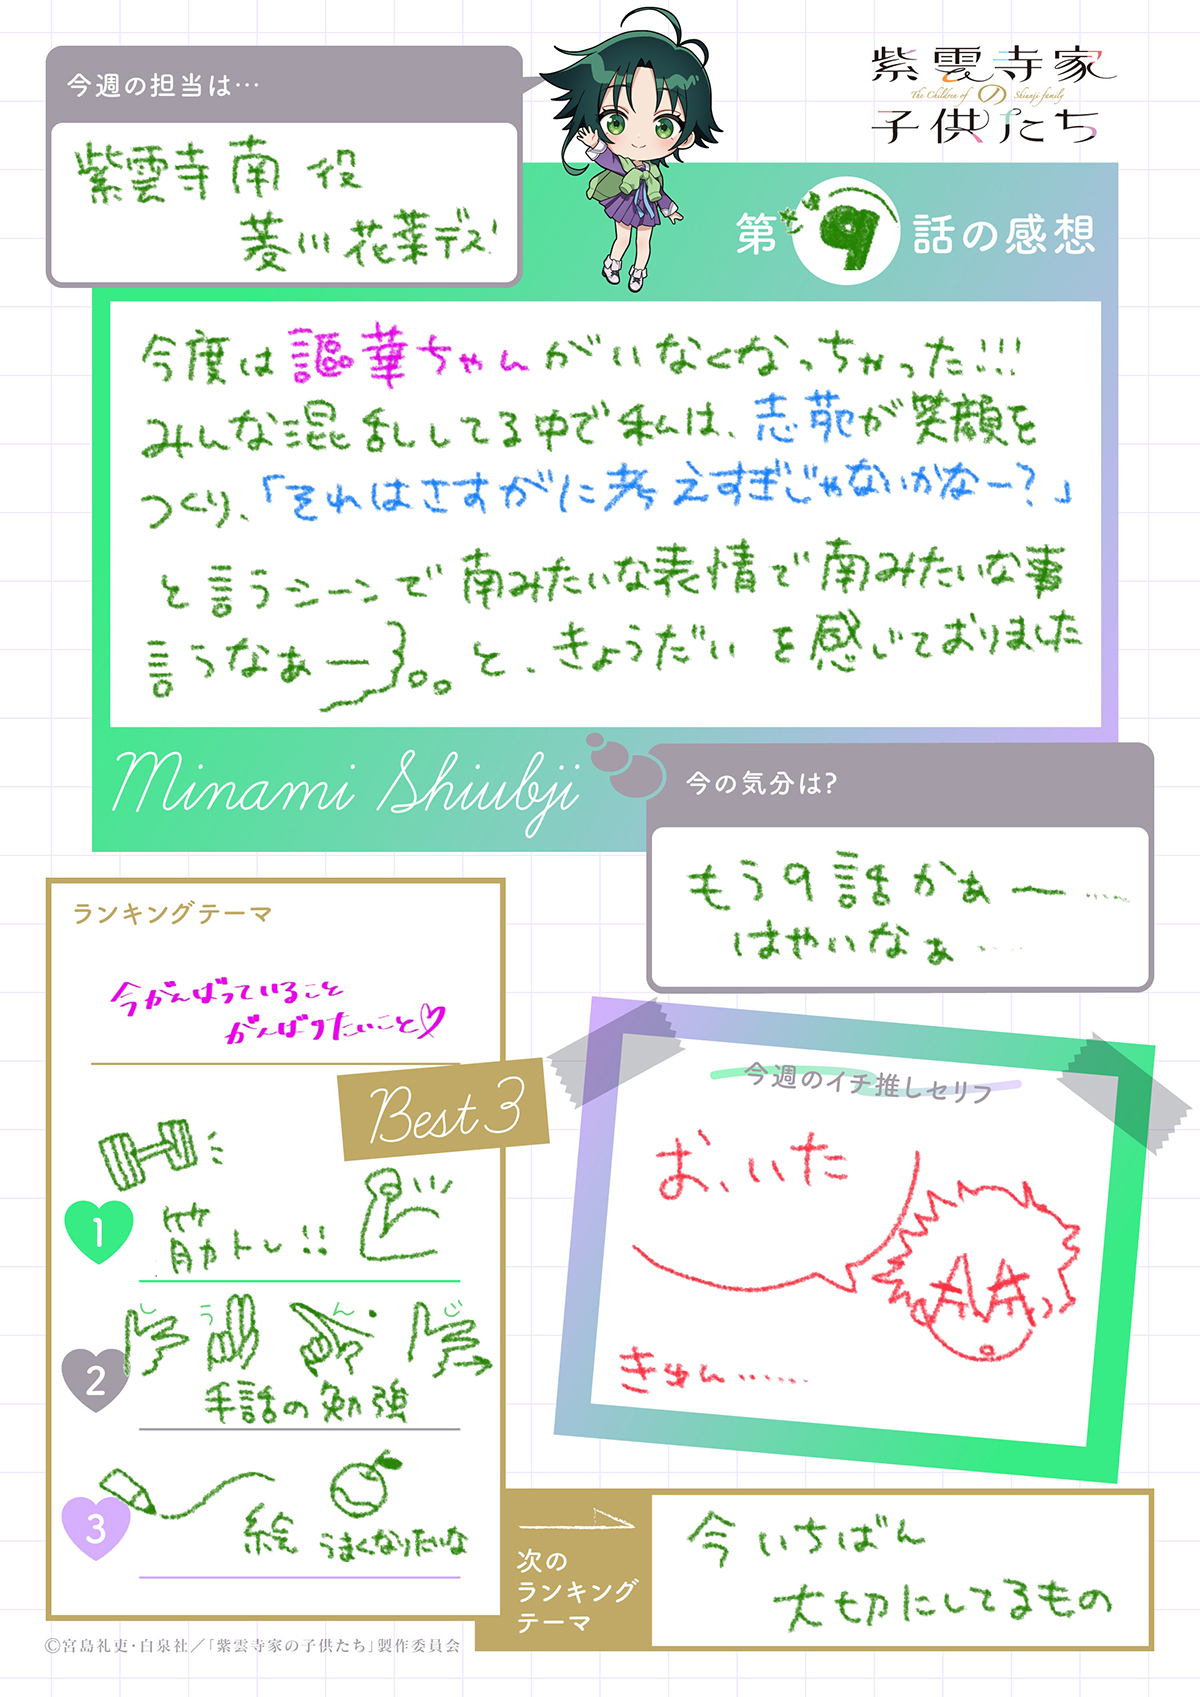 今週の担当は…
紫雲寺 南 役
菱川 花菜デス!
紫雲寺家
の
The Children of Shiunji family
子供たち
第9話の感想
今度は謳華ちゃんがいなくなっちゃった!!!
みんな混乱してる中で私は、志苑が笑顔を
つくり、「それはさすがに考えすぎじゃないかなー?」
と言うシーンで南みたいな表情で南みたいな事
言うなぁー。。と、きょうだいを感じておりました
Minami Shiubji
今の気分は?
もう9話かぁー……
はやいなぁ…
ランキングテーマ
今がんばっていること
がんばりたいこと♡
Best 3
1
筋トレ!!
しゅんじ
2
手話の勉強
3
絵 うまくなりたいな
今週のイチ推しセリフ
お、いた
きゅん……
次の
ランキング
テーマ
今いちばん
大切にしてるもの
©宮島礼吏・白泉社/「紫雲寺家の子供たち」製作委員会